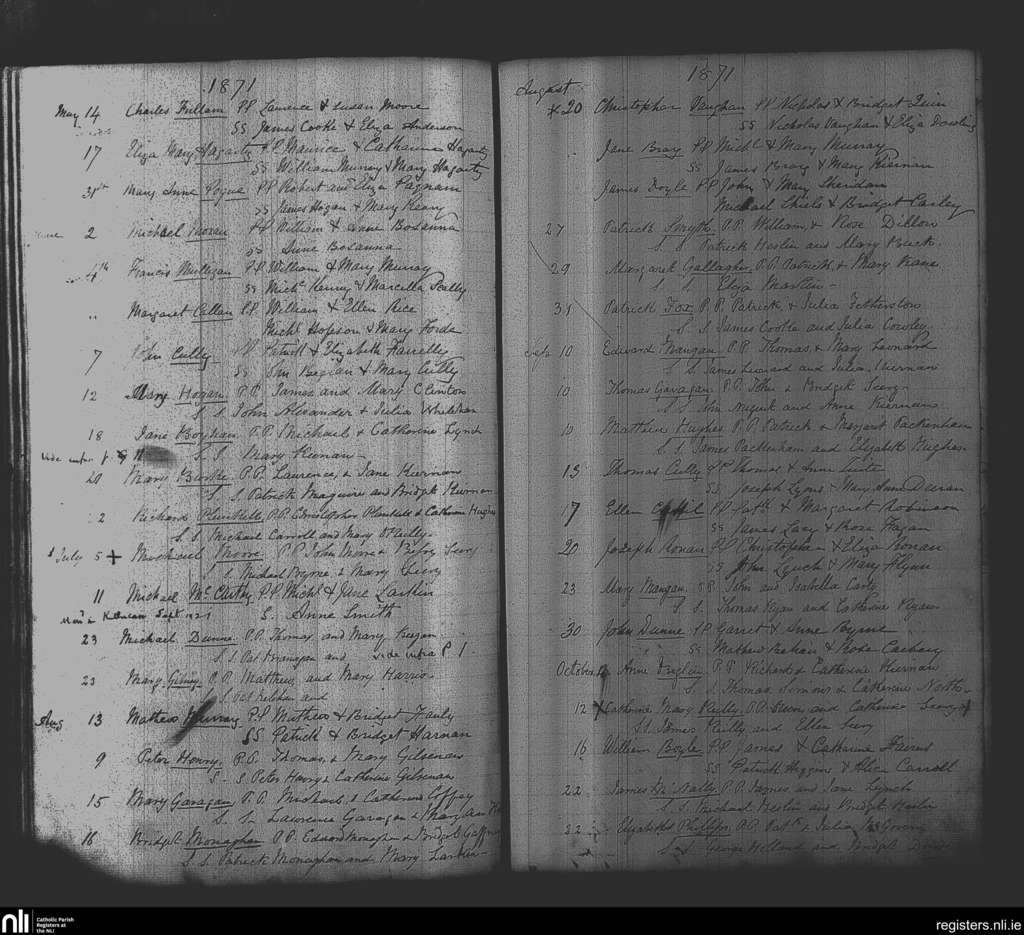 1871
May 14 Charles Fullam PP Laurence & Susan Moore
SS James Cooke & Eliza Anderson
17 Eliza Mary Hagarty PP Maurice & Catharine Hagarty
SS William Murray & Mary Hagarty
31st Mary Anne Pogue PP Robert and Eliza Pagnam
SS James Hogan & Mary Keary
June 2 Michael Moran PP William & Anne Bosanna
SS Anne Bosanna
4th Francis Mulligan PP William & Mary Murray
SS Michl Kenny & Marcella Scally
" Margaret Callan PP William & Ellen Rice
Michl Hopson & Mary Forde
7 John Cully PP Patrick & Elizabeth Farrelly
SS Jn Began & Mary Cully
12 Mary Hogan P.P. James and Mary Clinton
S. S. John Alexander & Julia Whelehan
18 Jane Boyhan P.P. Michael & Catherine Lynch
S. S. Mary Keenan
20 Mary Burke P.P. Laurence, & Jane Kiernan
S. S. Patrick Maguire and Bridget Kiernan
2 Richard Plunkett P.P. Christopher Plunkett & Catherine Hughes
S. S. Michael Carroll and Mary O'Reilly
July 5 + Michael Moore P.P. John Moore & Betsy Seery
S. S. Michael Byrne & Mary Seery
11 Michael McCarthy P.P. Michl & Jane Larkin
S. Anne Smith
23 Michael Dunne P.P. Thomas and Mary Keegan
S. S. Pat Branigan and vide infra P 1
23 Mary Gilsey P.P. Matthew and Mary Harris
S. Pat Kelehan and
Aug 13 Mathew Murray P.P. Mathew & Bridget Hanly
SS Patrick & Bridget Harnan
9 Peter Henry P.P. Thomas, & Mary Gilsenan
S. S. Peter Henry & Catherine Gilsenan
15 Mary Garagan P.P. Michael & Catherine Coffey
S. S. Lawrence Garagan & Mary Ann
16 Bridget Monaghan P.P. Edward Monaghan & Bridget Gaffney
S. S. Patrick Monaghan and Mary Larkin
1871
August
× 20 Christopher Vaughan PP Nicholas & Bridget Quin
SS Nicholas Vaughan & Eliza Dowling
Jane Bray PP Michl & Mary Murray
SS James Bray & Mary Kiernan
James Doyle PP John & Mary Sheridan
Michael Shiels & Bridget Casley
27 Patrick Smyth P.P. William, & Rose Dillon
S. S. Patrick Heslin and Mary
29 Margaret Gallagher P.P. Patrick, & Mary Kane
S. S. Eliza Martin
31 Patrick Fox P.P. Patrick & Julia Fetherston
S. S. James Cooke and Julia Cowley
Sep 10 Edward Mangan P.P. Thomas, & Mary Leonard
S. S. James Leonard and Julia Kiernan
10 Thomas Garagan P.P. John & Bridget Seery
S. S. John Nugent and Anne Kiernans
10 Matthew Hughes P.P. Patrick & Margaret Packenham
S. S. James Packenham and Elizabeth Hughes
13 Thomas Cully PP Thomas & Anne
SS Joseph Lyons & Mary Anne Duran
17 Ellen PP Patk & Margaret Robinson
SS James Lacy & Rose Fagan
20 Joseph Ronan PP Christopher & Eliza Ronan
SS John Lynch & Mary Flynn
23 Mary Mangan P.P. John and Isabella Carte
S. S. Thomas Ryan and Catherine Ryan
30 John Dunne PP Garret & Anne Byrne
SS Mathew Keshan & Rose Casbery
October Anne English P.P. Richard & Catherine Kiernan
S. S. Thomas Simons & Catherine North
12 × Catherine Mary Reilly P.P. Owen and Catherine Seery
S. S. James Reilly and Ellen Seery
16 William Boyle PP James & Catharine Fairns
SS Patrick Higgins & Alice Carroll
22 James McNally P.P. James and Jane Lynch
S. S. Michael Heslin and Bridget Heslin
22 Elizabeth Phillips P.P. Patk & Julia McGovern
S. S. George Holland and Bridget
nli
Catholic Parish
Registers at
the NLI
registers.nli.ie